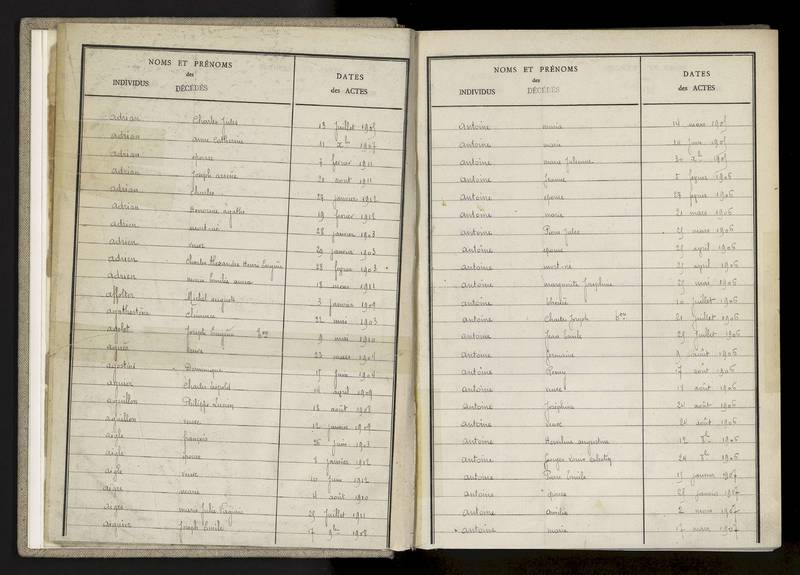 NOMS ET PRÉNOMS
des
INDIVIDUS DÉCÉDÉS
DATES
des ACTES
adrian Charles Jules 13 Juillet 1905
adrian anne Catherine 11 Xbre 1907
adrian epouse 7 fevrier 1911
adrian Joseph 21 aout 1911
adrian Charles 27 janvier 1912
adrian Honorine agathe 19 fevrier 1912
adrien mort-né 28 janvier 1903
adrien veuve 29 janvier 1903
adrien Charles Alexandre Henri Eugène 28 fevrier 1903
adrien marie Emilie 18 mars 1911
affolter Michel auguste 3 janvier 1909
22 mai 1903
adolet Joseph Eugène 9 mai 1910
veuve 23 mars 1904
agostini Dominique 17 Juin 1904
Charles Léopold 14 avril 1909
aguillon Philippe Lucien 13 août 1908
aguillon veuve 12 janvier 1909
aigle françois 26 juin 1903
aigle epouse 8 janvier 1912
aigle veuve 10 juin 1912
aigre marie 4 août 1910
aigre marie Julie 29 Juillet 1911
Joseph Emile 17 9bre 1908
NOMS ET PRÉNOMS
des
INDIVIDUS DÉCÉDÉS
DATES
des ACTES
antoine maria 14 mars 1905
antoine marie juin 1905
antoine marie Julienne 30 Xbre 1905
antoine Jeanne 5 fevrier 1906
antoine epouse 27 fevrier 1906
antoine marie 21 mars 1906
antoine Pierre Jules 29 mars 1906
antoine epouse 29 avril 1906
antoine mort-né 29 avril 1906
antoine marguerite Joséphine 29 mai 1906
antoine 10 juillet 1906
antoine Charles Joseph 21 juillet 1906
antoine Jean Emile 29 Juillet 1906
antoine Germaine 9 août 1906
antoine Remy 17 août 1906
antoine veuve 18 août 1906
antoine Joséphine 24 août 1906
antoine veuve 24 août 1906
antoine augustine 12 8bre 1906
antoine Georges Louis 24 8bre 1906
antoine Pierre Emile 19 janvier 1907
antoine epouse 29 janvier 1907
antoine amélie 2 mars 1907
antoine marie 17 mars 1907